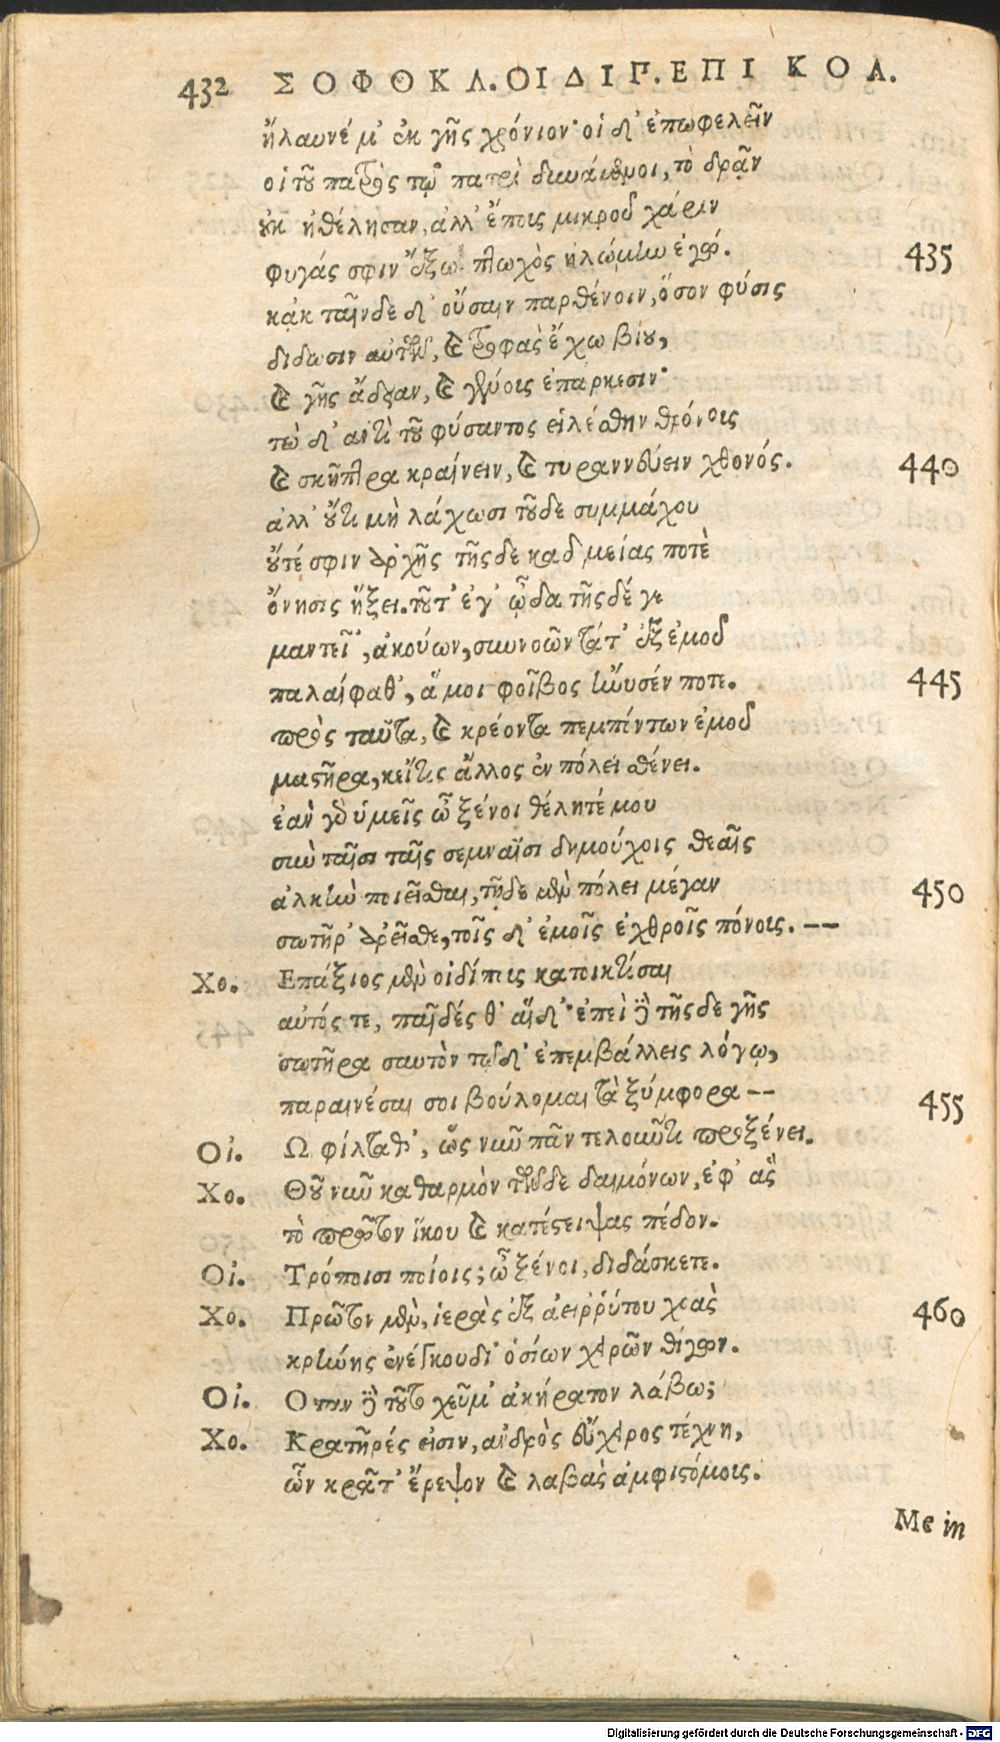 432 ΣΟΦΟΚΛ. ΟΙΔΙΠ. ΕΠΙ ΚΟΛ.
ἤλαυνέ μ' ἐκ γῆς χρόνιον· οἱ δ' ἐπωφελεῖν
οἱ τοῦ πατρὸς τῷ πατρὶ δυνάμενοι, τὸ δρᾷν
οὐκ ἠθέλησαν, ἀλλ' ἔπους μικροῦ χάριν
φυγάς σφιν ἔξω πτωχὸς ἠλώμην ἐγώ. 435
κᾀκ ταῖνδε δ' οὔσαιν παρθένοιν, ὅσον φύσις
δίδωσιν αὐταῖν, καὶ τροφὰς ἔχω βίου,
καὶ γῆς ἄδειαν, καὶ γένους ἐπάρκεσιν·
τὼ δ' ἀντὶ τοῦ φύσαντος εἱλέσθην θρόνοις
καὶ σκῆπτρα κραίνειν, καὶ τυραννεύειν χθονός. 440
ἀλλ' οὔτι μὴ λάχωσι τοῦδε συμμάχου
οὔτέ σφιν ἀρχῆς τῆσδε καδμείας ποτὲ
ὄνησις ἥξει. τοῦτ' ἐγ' ᾦδα τῆσδέ γε
μαντεῖ', ἀκούων, συννοῶν τάτ' ἐξ ἐμοῦ
παλαίφαθ', ἅ μοι φοῖβος ἤνυσέν ποτε. 445
πρὸς ταῦτα, καὶ κρέοντα πεμπόντων ἐμοῦ
μαστῆρα, κεἴτις ἄλλος ἐν πόλει σθένει.
ἐὰν γὰρ ὑμεῖς ὦ ξένοι θέλητέ μου
σὺν ταῖσι ταῖς σεμναῖσι δημούχοις θεαῖς
ἀλκὴν ποιεῖσθαι, τῇδε μὲν πόλει μέγαν 450
σωτῆρ' ἀρεῖσθε, τοῖς δ' ἐμοῖς ἐχθροῖς πόνοις. --
Χο. Επάξιος μὲν οἰδίπους κατοικτίσαι
αὐτός τε, παῖδές θ' αἵδ'· ἐπεὶ δὲ τῆσδε γῆς
σωτῆρα σαυτὸν τῷδ' ἐπεμβάλλεις λόγῳ,
παραινέσαι σοι βούλομαι τὰ ξύμφορα -- 455
Οἰ. Ω φίλταθ', ὥς νιῦ πᾶν τελοιῦτι προξένει.
Χο. Θοῦ νιῦ καθαρμὸν τῶνδε δαιμόνων, ἐφ' ἃς
τὸ πρῶτον ἵκου καὶ κατέστειψας πέδον.
Οἰ. Τρόποισι ποίοις; ὦ ξένοι, διδάσκετε.
Χο. Πρῶτον μὲν, ἱερὰς ἐξ ἀειῤῥύτου χοὰς 460
κρήνης ἐνέγκου δι' ὁσίων χειρῶν θίγων.
Οἰ. Οταν δὲ τοῦτο χεῦμ' ἀκήρατον λάβω;
Χο. Κρατῆρές εἰσιν, ἀνδρὸς εὔχειρος τέχνη,
ὧν κρᾶτ' ἔρεψον καὶ λαβὰς ἀμφιστόμοις.
Me in
Digitalisierung gefördert durch die Deutsche Forschungsgemeinschaft - DFG